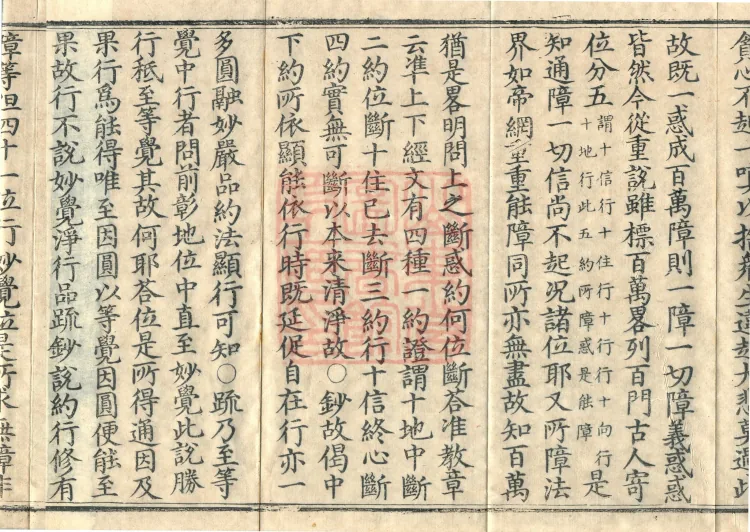 貪心不起一
故既一惑成百萬障則一障一切障義惑惑
皆然今從重說雖標百萬畧列百門古人寄
位分五謂十信行十住行十行行十向行十地行此五約所障惑是能障是
知通障一切信尚不起況諸位耶又所障法
界如帝網重重能障同所亦無盡故知百萬
猶是畧明問上之斷惑約何位斷荅准教章
云準上下經文有四種一約證謂十地中斷
二約位斷十住已去斷三約行十信終心斷
四約實無可斷以本来清淨故〇鈔故偈中
下約所依顯能依行時既延促自在行亦一
多圓融妙嚴品約法顯行可知〇䟽乃至等
覺中行者問前彰地位中直至妙覺此說勝
行秖至等覺其故何耶荅位是所得通因及
果行爲能得唯至因圓以等覺因圓便能至
果故行不說妙覺淨行品䟽鈔說約行修有
障等但四十一位行妙覺位是所求